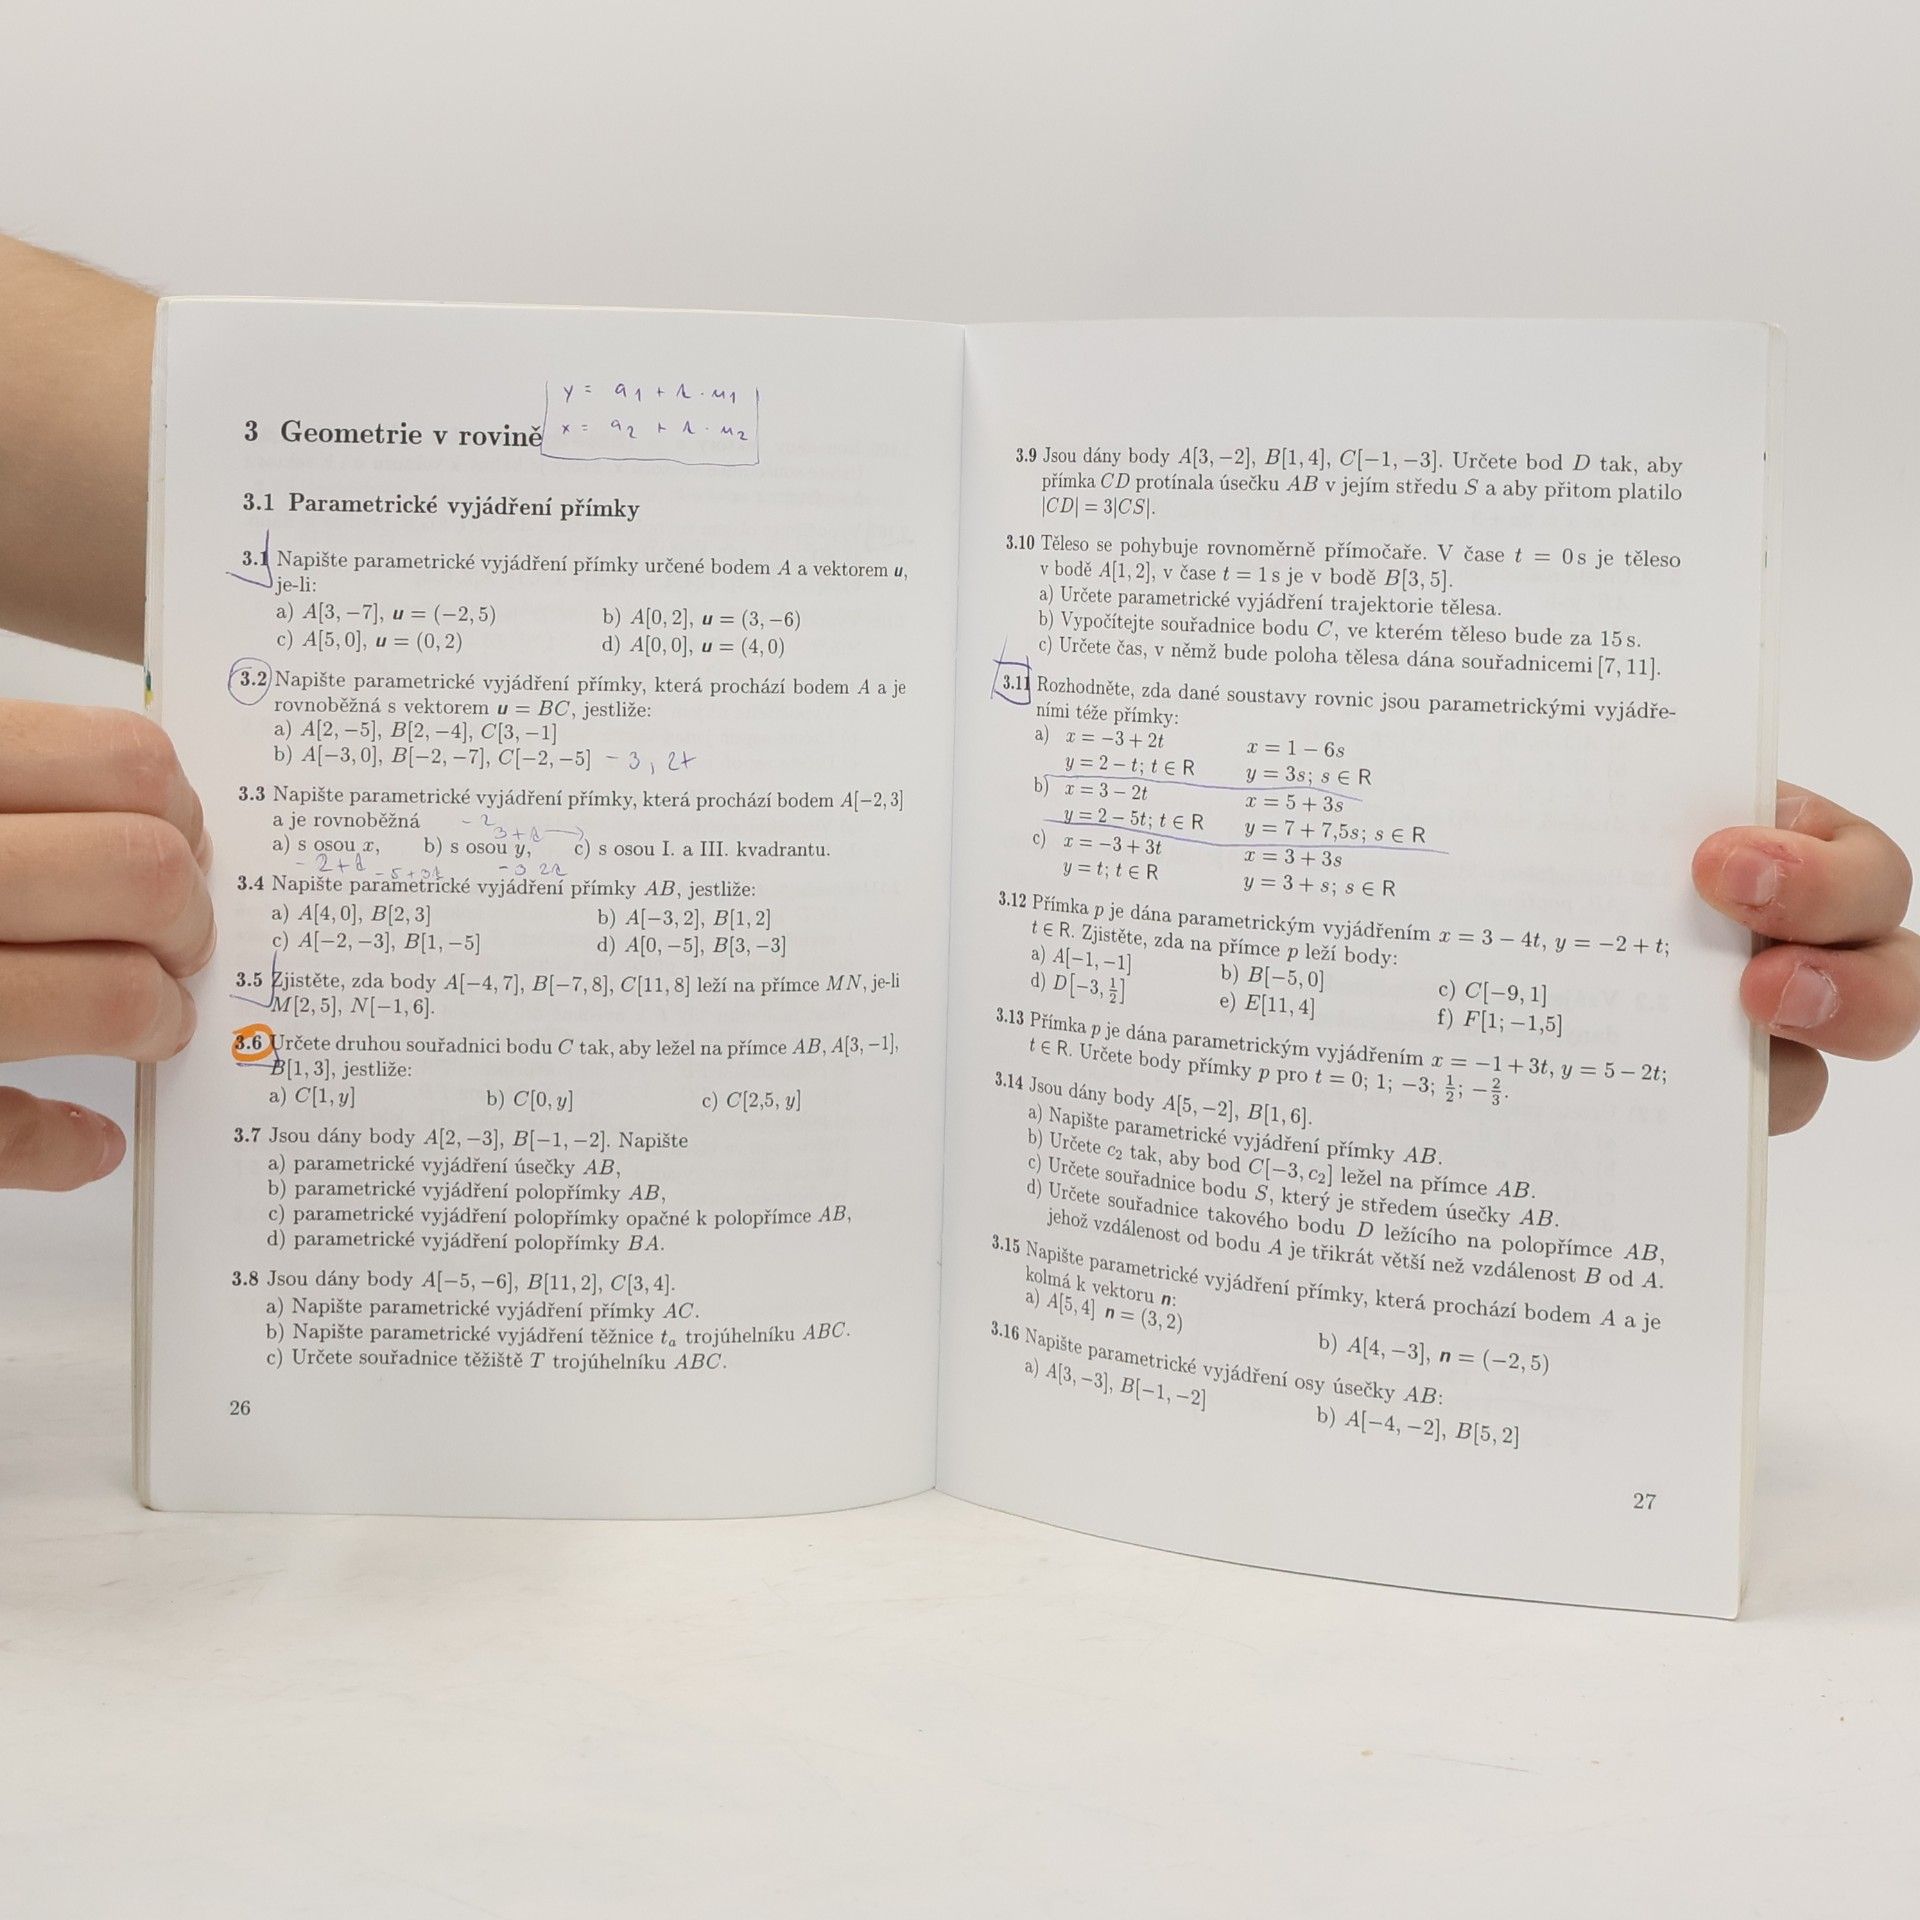 y = a1 + t · u1
x = a2 + t · u2
3 Geometrie v rovině
3.1 Parametrické vyjádření přímky
3.1 Napište parametrické vyjádření přímky určené bodem A a vektorem u,
je-li:
a) A[3, −7], u = (−2, 5) b) A[0, 2], u = (3, −6)
c) A[5, 0], u = (0, 2) d) A[0, 0], u = (4, 0)
3.2 Napište parametrické vyjádření přímky, která prochází bodem A a je
rovnoběžná s vektorem u = BC, jestliže:
a) A[2, −5], B[2, −4], C[3, −1]
b) A[−3, 0], B[−2, −7], C[−2, −5] −3, 2t
3.3 Napište parametrické vyjádření přímky, která prochází bodem A[−2, 3]
a je rovnoběžná −2
3+t
a) s osou x, b) s osou y, c) s osou I. a III. kvadrantu.
−2+t −5+3t −3 2t
3.4 Napište parametrické vyjádření přímky AB, jestliže:
a) A[4, 0], B[2, 3] b) A[−3, 2], B[1, 2]
c) A[−2, −3], B[1, −5] d) A[0, −5], B[3, −3]
3.5 Zjistěte, zda body A[−4, 7], B[−7, 8], C[11, 8] leží na přímce MN, je-li
M[2, 5], N[−1, 6].
3.6 Určete druhou souřadnici bodu C tak, aby ležel na přímce AB, A[3, −1],
B[1, 3], jestliže:
a) C[1, y] b) C[0, y] c) C[2,5, y]
3.7 Jsou dány body A[2, −3], B[−1, −2]. Napište
a) parametrické vyjádření úsečky AB,
b) parametrické vyjádření polopřímky AB,
c) parametrické vyjádření polopřímky opačné k polopřímce AB,
d) parametrické vyjádření polopřímky BA.
3.8 Jsou dány body A[−5, −6], B[11, 2], C[3, 4].
a) Napište parametrické vyjádření přímky AC.
b) Napište parametrické vyjádření těžnice ta trojúhelníku ABC.
c) Určete souřadnice těžiště T trojúhelníku ABC.
26
3.9 Jsou dány body A[3, −2], B[1, 4], C[−1, −3]. Určete bod D tak, aby
přímka CD protínala úsečku AB v jejím středu S a aby přitom platilo
|CD| = 3|CS|.
3.10 Těleso se pohybuje rovnoměrně přímočaře. V čase t = 0 s je těleso
v bodě A[1, 2], v čase t = 1 s je v bodě B[3, 5].
a) Určete parametrické vyjádření trajektorie tělesa.
b) Vypočítejte souřadnice bodu C, ve kterém těleso bude za 15 s.
c) Určete čas, v němž bude poloha tělesa dána souřadnicemi [7, 11].
3.11 Rozhodněte, zda dané soustavy rovnic jsou parametrickými vyjádře-
ními téže přímky:
a) x = −3 + 2t x = 1 − 6s
y = 2 − t; t ∈ R y = 3s; s ∈ R
b) x = 3 − 2t x = 5 + 3s
y = 2 − 5t; t ∈ R y = 7 + 7,5s; s ∈ R
c) x = −3 + 3t x = 3 + 3s
y = t; t ∈ R y = 3 + s; s ∈ R
3.12 Přímka p je dána parametrickým vyjádřením x = 3 − 4t, y = −2 + t;
t ∈ R. Zjistěte, zda na přímce p leží body:
a) A[−1, −1] b) B[−5, 0] c) C[−9, 1]
d) D[−3, 1/2] e) E[11, 4] f) F[1; −1,5]
3.13 Přímka p je dána parametrickým vyjádřením x = −1 + 3t, y = 5 − 2t;
t ∈ R. Určete body přímky p pro t = 0; 1; −3; 1/2; −2/3.
3.14 Jsou dány body A[5, −2], B[1, 6].
a) Napište parametrické vyjádření přímky AB.
b) Určete c2 tak, aby bod C[−3, c2] ležel na přímce AB.
c) Určete souřadnice bodu S, který je středem úsečky AB.
d) Určete souřadnice takového bodu D ležícího na polopřímce AB,
jehož vzdálenost od bodu A je třikrát větší než vzdálenost B od A.
3.15 Napište parametrické vyjádření přímky, která prochází bodem A a je
kolmá k vektoru n:
a) A[5, 4] n = (3, 2) b) A[4, −3], n = (−2, 5)
3.16 Napište parametrické vyjádření osy úsečky AB:
a) A[3, −3], B[−1, −2] b) A[−4, −2], B[5, 2]
27